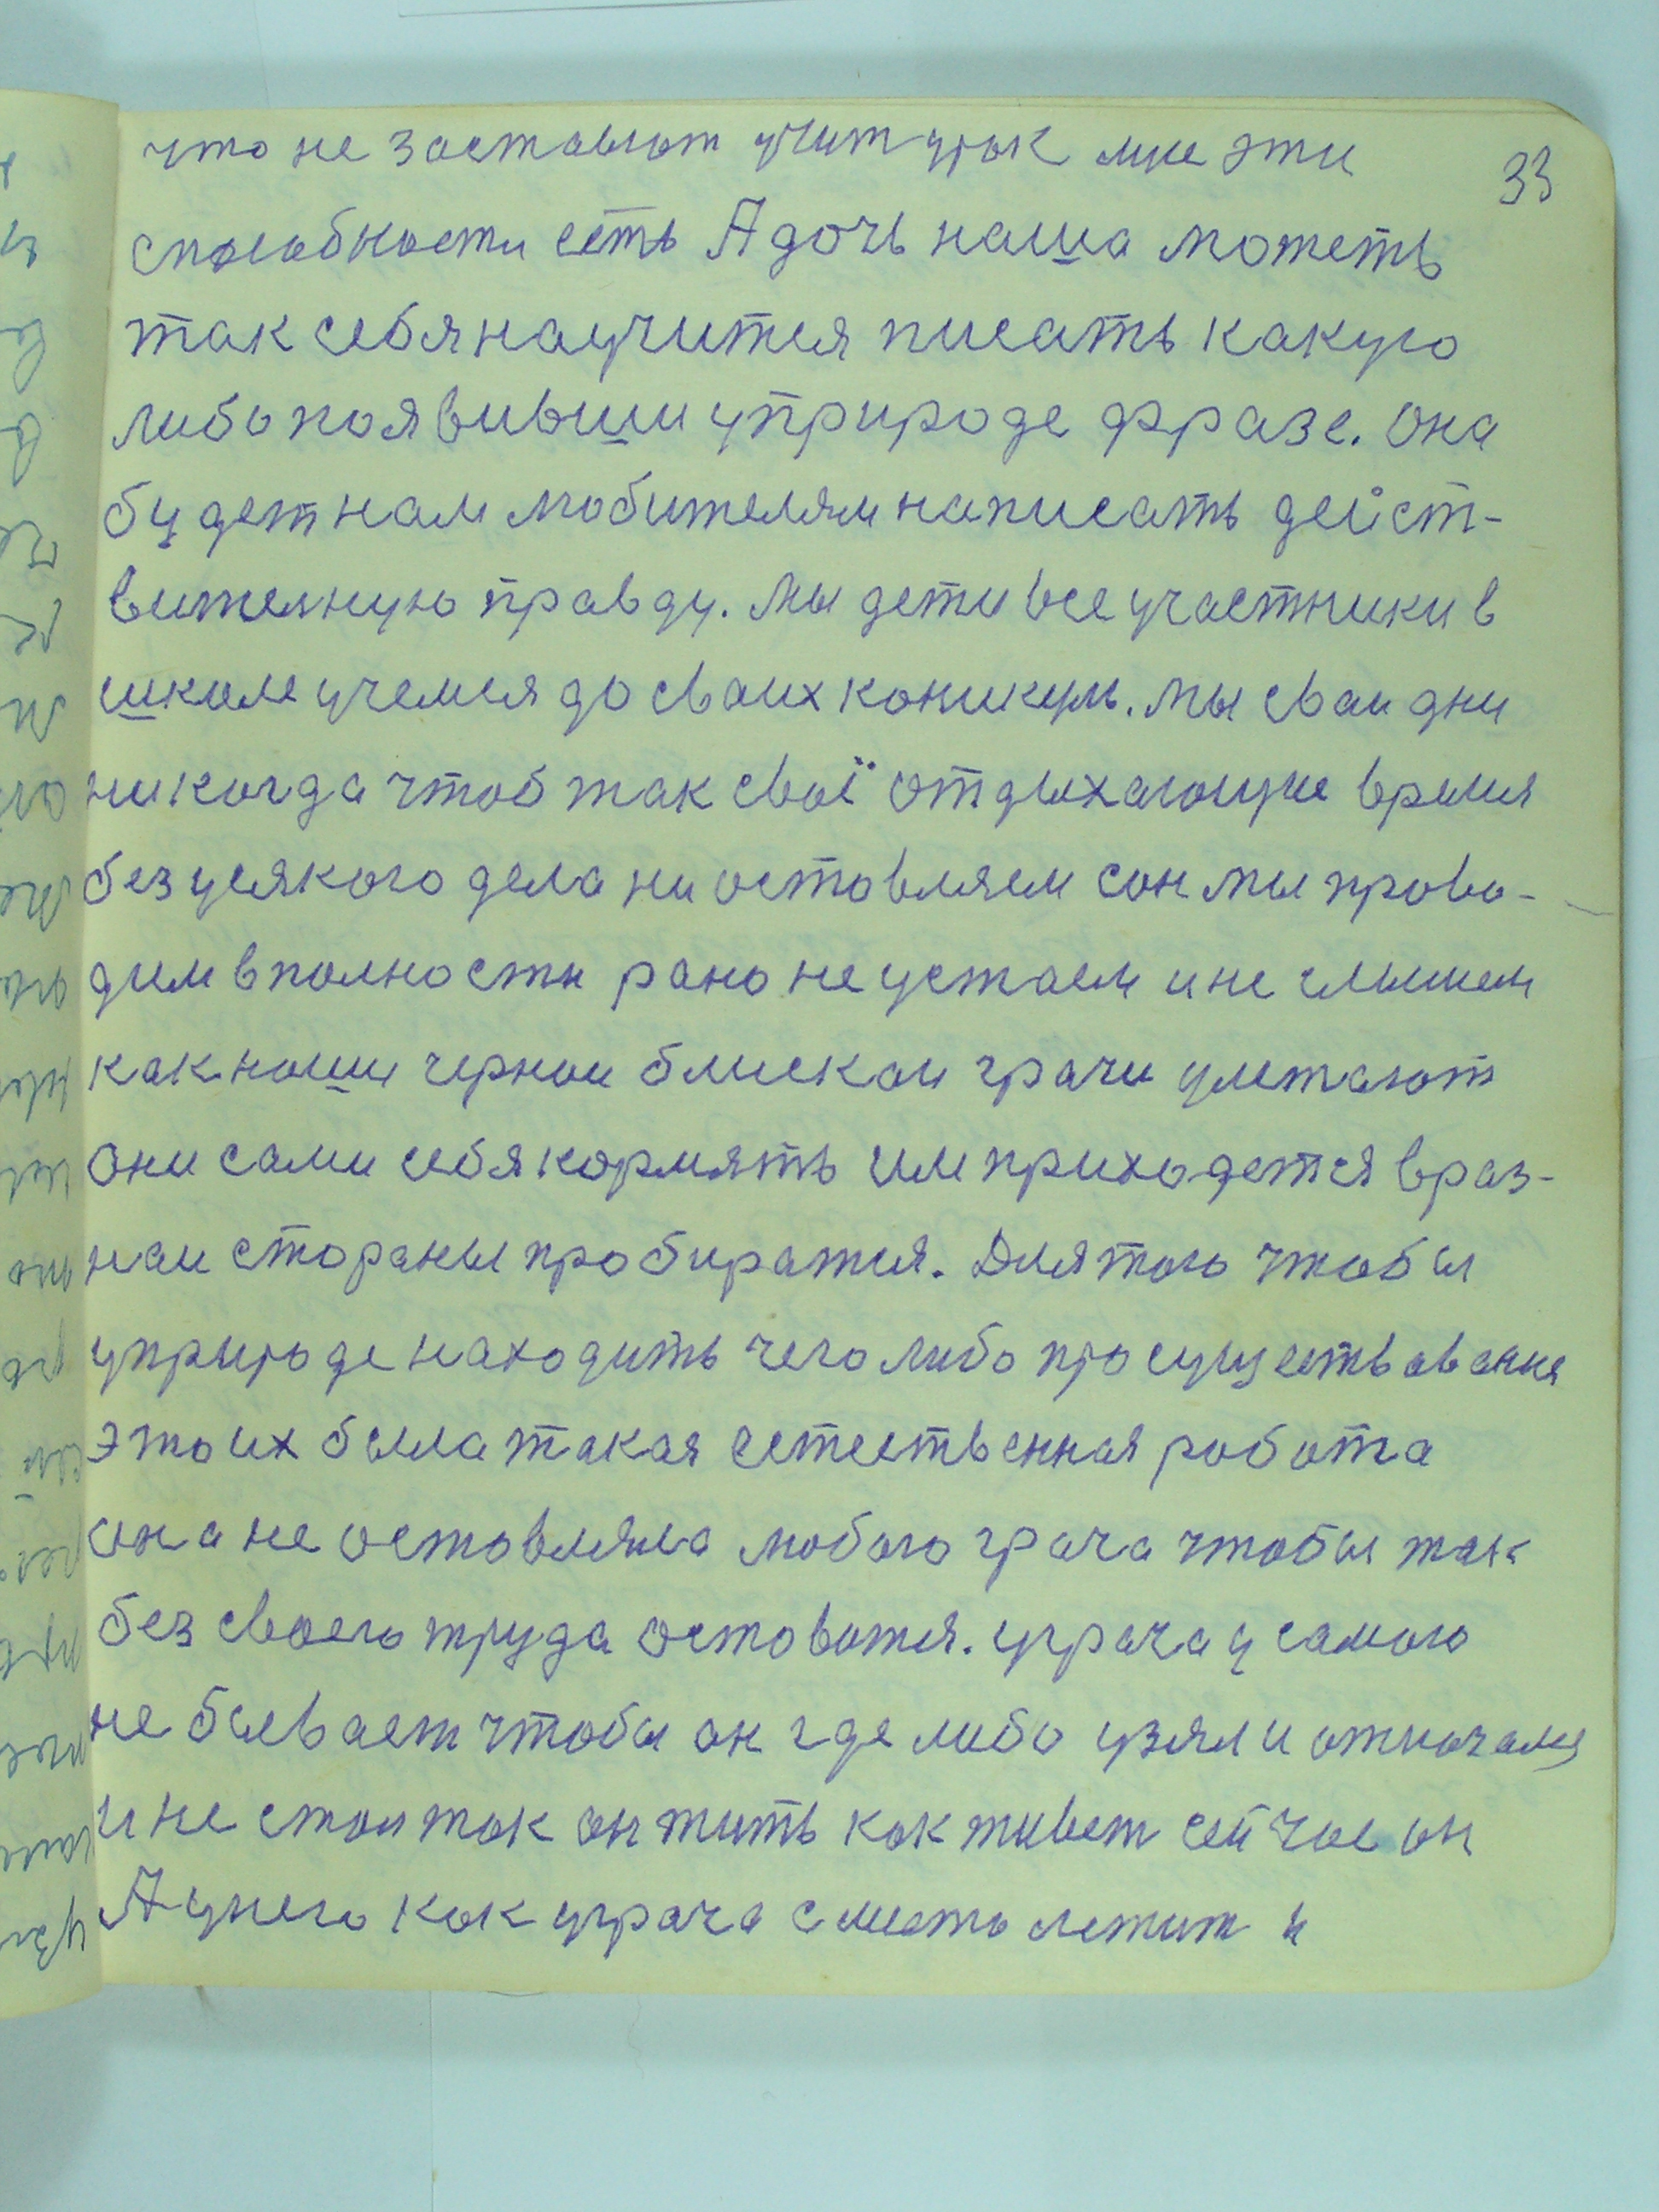 33
что не заставлют учит урок мне эти
способности есть А дочь наша можеть
так себя научится писать какую
либо появивьши уприроде фразе. она
будет нам любителям написать дейст-
вителную правду. мы дети все участники в
школе учемся до своих коникул. мы сваи дни
никогда чтоб так своё отдыхающие время
без усякого дела ни оставляем сон мы прово-
дим вполности рано не устаем и не слышем
как наши чернои блискои грачи улетают
они сами себя кормять им приходется враз-
наи стораны пробиратся. Для того чтобы
уприроде находить чего либо просуществования
это их была такая естественная работа
она не оставляла любого грача чтобы так
без своего труда остоватся. уграча у самого
не бывает чтобы он где либо узял и
и не стал так он жить как живет сейчас он
А унего как уграча сместо летит и